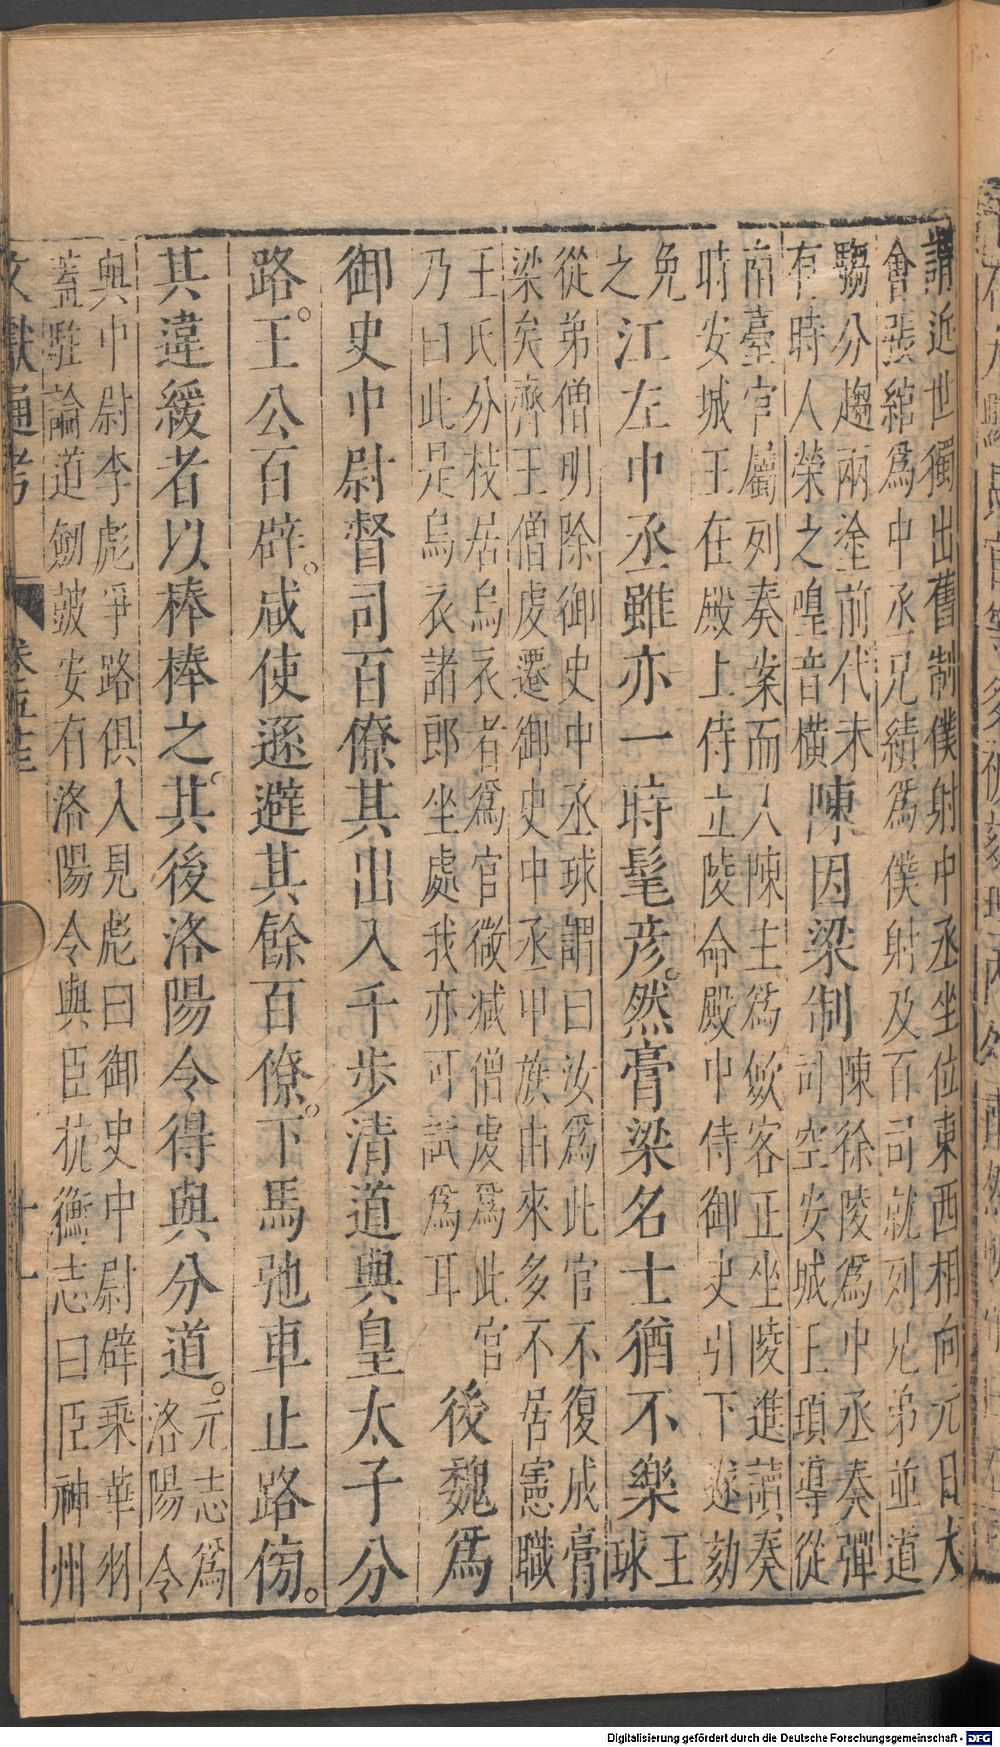 謂近世獨出舊制僕射中丞坐位東西相向元日大
會張綰爲中丞兄纘爲僕射及百司就列兄弟並道
騶分趨兩塗前代未
有時人榮之喤音橫
陳因梁制
陳徐陵爲中丞奏彈
司空安城王頊導從
南臺官屬列奏案而入陳主爲斂客正坐陵進讀奏
時安城王在殿上侍立陵命殿中侍御史引下遂劾
免
之
江左中丞雖亦一時髦彦。然膏梁名士猶不樂
王
球
從弟僧明除御史中丞球謂曰汝爲此官不復成膏
梁矣齊王僧虔遷御史中丞甲族由來多不居憲職
王氏分枝居烏衣者爲官微減僧虔爲此官
乃曰此是烏衣諸郎坐處我亦可試爲耳
後魏爲
御史中尉督司百僚其出入千步清道與皇太子分
路。王公百辟。咸使遜避其餘百僚。下馬弛車止路傍。
其違緩者以棒棒之。其後洛陽令得與分道。
元志爲
洛陽令
與中尉李彪爭路俱入見彪曰御史中尉辟乘華羽
蓋駐論道劍皷安有洛陽令與臣抗衡志曰臣神州
文獻通考
卷五十三
十一
Digitalisierung gefördert durch die Deutsche Forschungsgemeinschaft - DFG